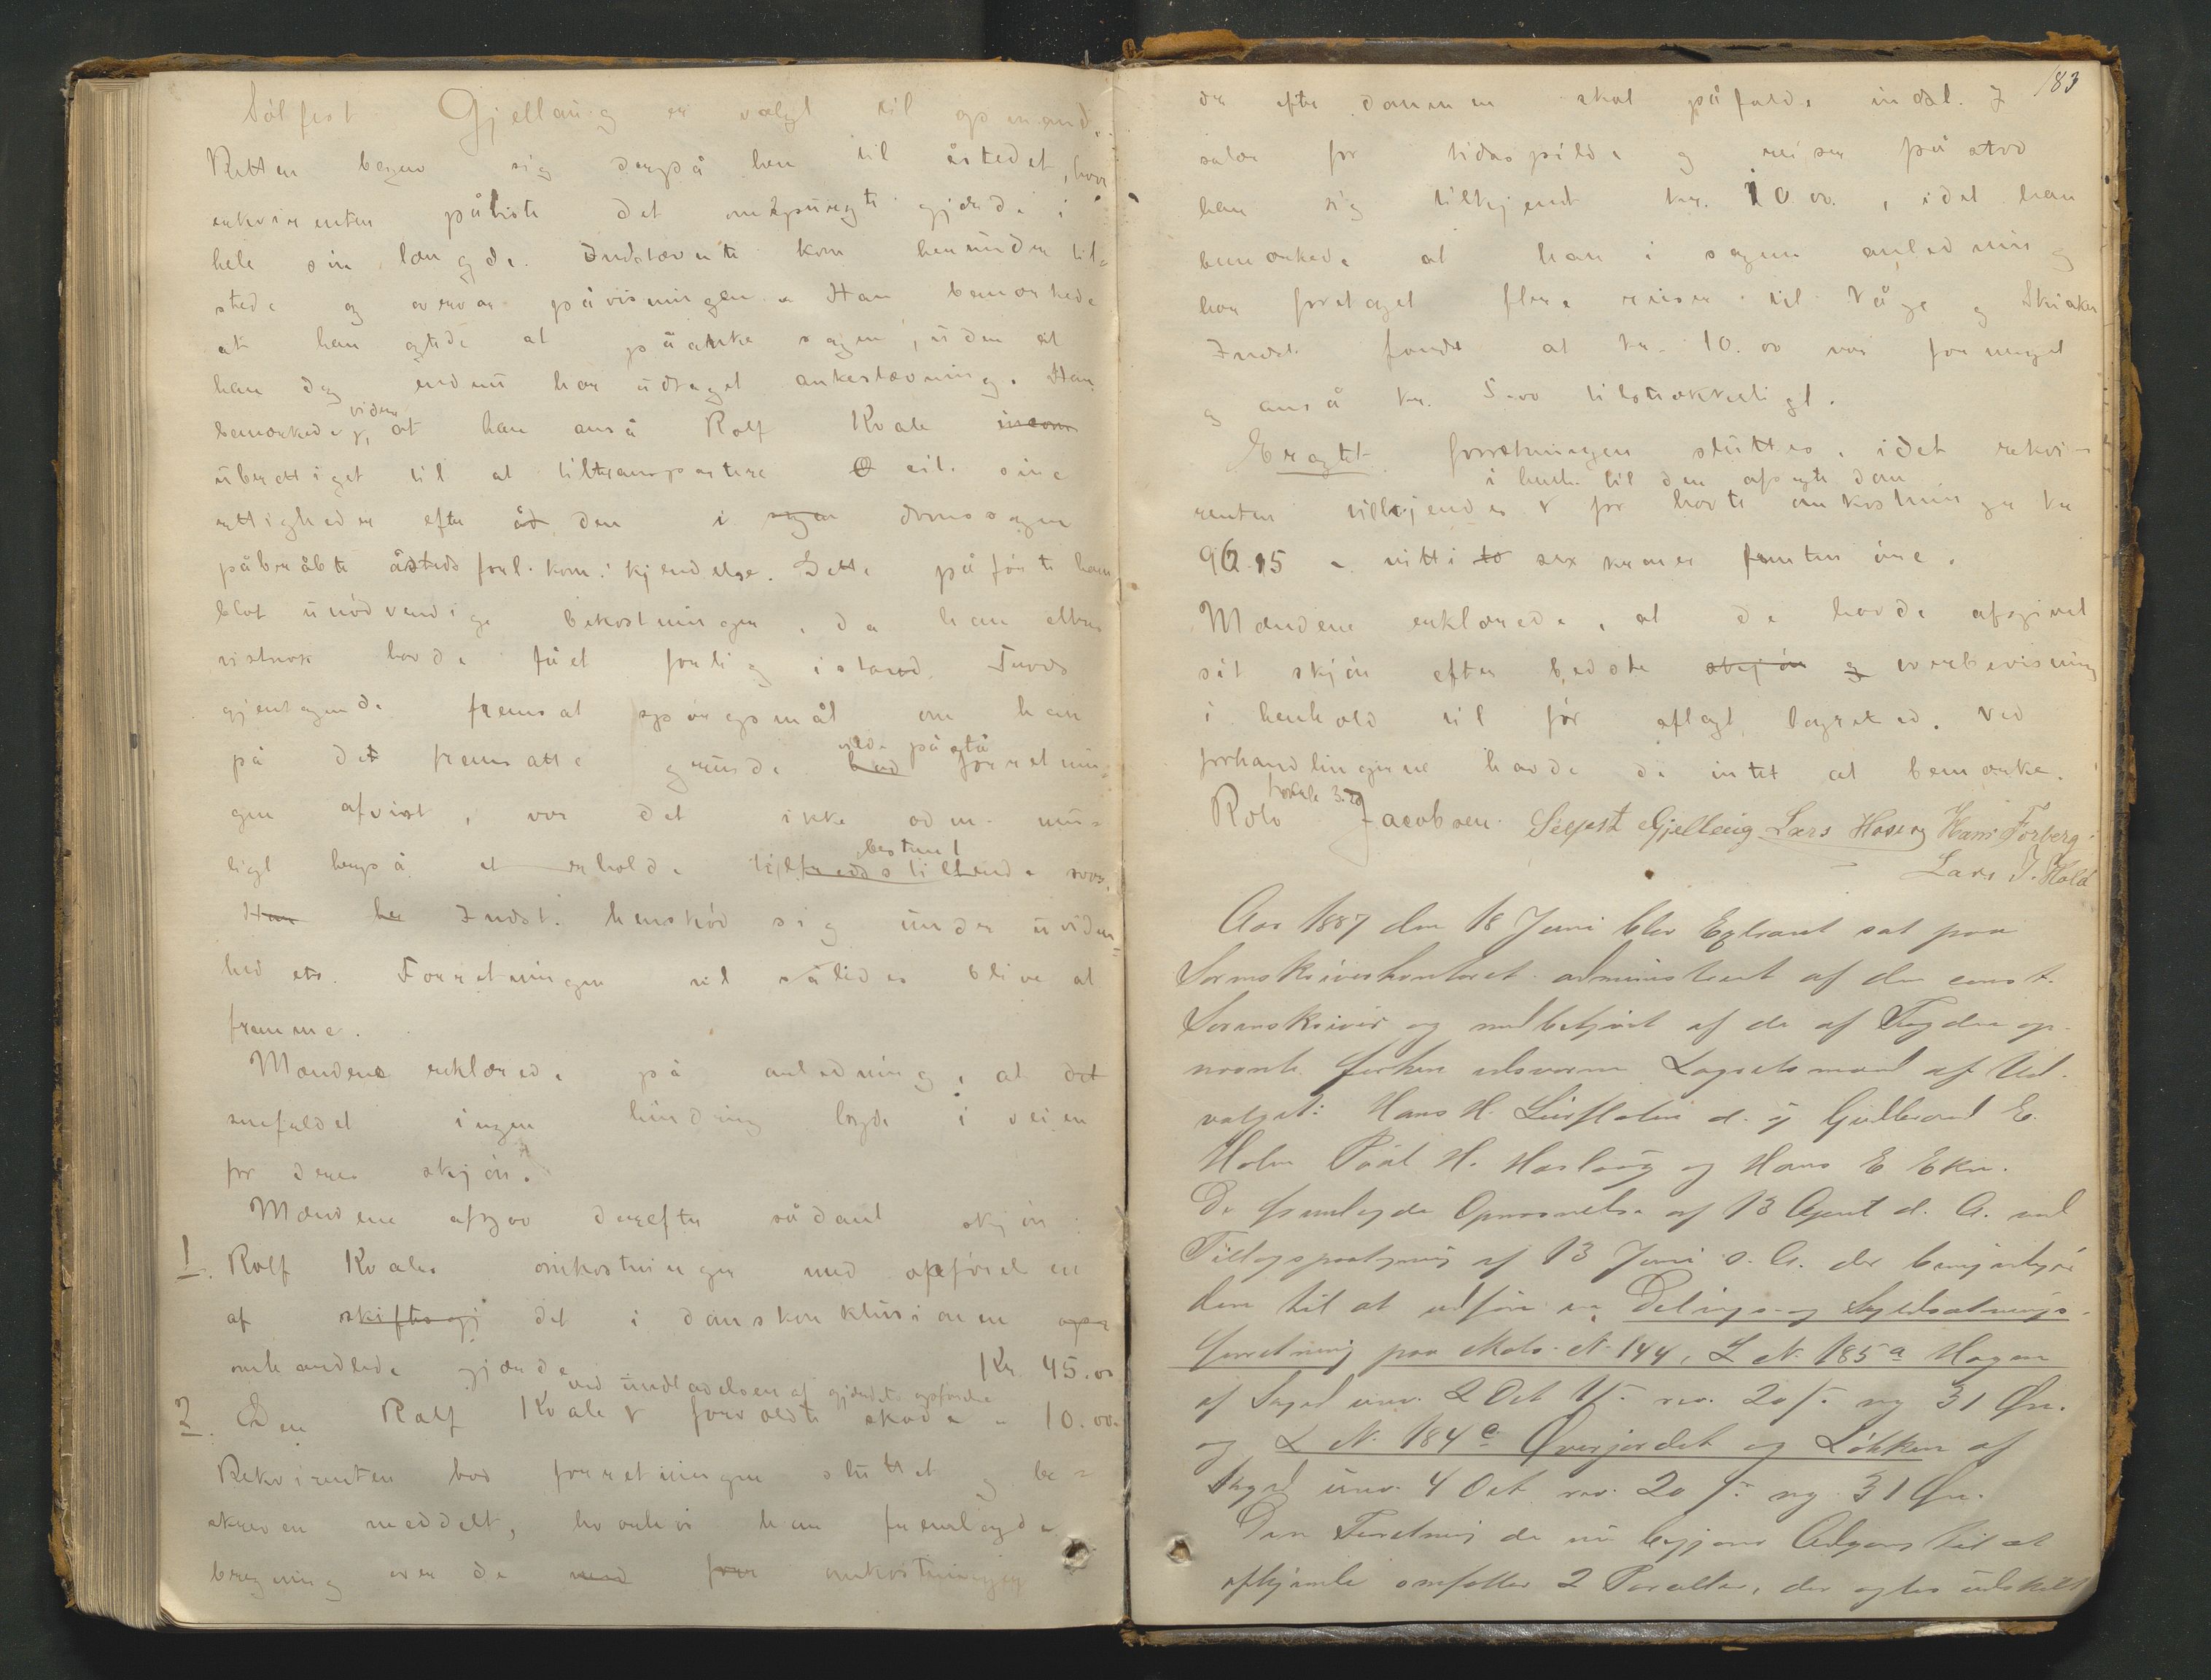 Sølfest Gjellaug er valgt til opmand.
Retten begav sig derpå hen til åstedet, hvor
rekvirenten påviste det omspurgte gjærde i
hele sin længde. Indstævnte kom herunder til-
stede og overvar påvisningen. Han bemærkede
at han agtede at påanke sagen, uden at
han dog endnu har udtaget ankestævning. Han
bemærkede videre, at han anså Rolf Kvale
uberettiget til at tiltransportere eil. sine
rettigheder efter den i domssagen
påberåbte åsteds forl. kom. kjendelse. Dette påførte ham
blot unødvendige bekostninger, da han ellers
vistnok havde fået forlig istand. Trods
gjentagende fremsat spørgsmål om han
på det fremsatte grunde vilde påstå forretnin-
gen afvist, var det ikke adm. mu-
ligt herpå at erholde bestemt svar.
Han har Indst. henskød sig under uviden-
hed etc. Forretningen vil således blive at
fremme.
Mændene erklærede på anledning, at det
snefaldet ingen hindring lagde i veien
for deres skjøn.
Mændene afgav derefter sådant skjøn:
1. Rolf Kvales omkostninger med opførelsen
af skiftegj det i domskonklusionen
omhandlede gjærde Kr. 45.00
2. Den Rolf Kvale ved undladelsen af gjærdets opførelse forvoldte skade " 10.00.
Rekvirenten bad forretningen sluttet og be-
skreven meddelt, hvorhos han fremlagde
bregning over de med omkostninger
183
der efter dommen skal påfalde indst. I
salær for tidsspilde og reiser påstod
han sig tilkjendt kr. 10.00., idet han
bemærkede at han i sagens anledning
har foretaget flere reiser til Våge og Skiaker
Indst. fandt at kr. 10.00 var for meget
og anså kr. 5.00 tilstrækkeligt.
Eragtet forretningen sluttes, idet rekvi-
renten tilkjendes i henh. til den afsagte dom for havte omkostninger kr
96.15 - nitti to sex kroner femten øre.
Mændene erklærede, at de havde afgivet
sit skjøn efter bedste skjøn og overbevisning
i henhold til før aflagt lagretsed. Ved
forhandlingerne havde de intet at bemærke.
Rolv Kvale Jacobsen. Siegest Gjelleug Lars Hoseng Hans Forberg
Lars J. Hold
Aar 1887 den 18 Juni blev Extraret sat paa
Sorenskriverkontoret administreret af den const.
Sorenskriver og medbetjent af de af Fogden op-
nævnte forhen edsvorne Lagretsmænd af Ud-
valget: Hans H. Lunstolen d. y Gudbrand E.
Holm Paal H. Haslaug og Hans E Ekre.
De fremlagde Opnævnelse af 13 April d. A. med
Tillægspaategning af 13 Juni s. A. der bemyndiger
dem til at udføre en Delings- og Skyldsætnings-
forretning paa Matr. N. 144, L N. 185a Hagen
af Skyld urev. 2 Ort 1/- rev. 20/- ny 31 Øre.
og L N. 184c Øverjordet og Løkken af
Skyld urev. 4 Ort rev. 20/- ny 31 Øre.
Den Forretning de nu begjære Adgang til at
afhjemle omfatter 2 Parceller, der agtes udskilt